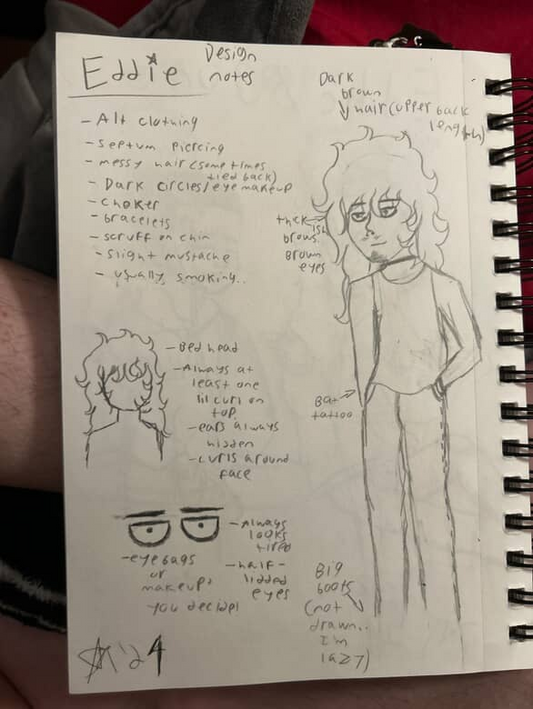 Eddie
Design
notes
- Alt clothing
- Septum piercing
- messy hair (sometimes
tied back)
- Dark circles/eye makeup
- choker
- bracelets
- scruff on chin
- slight mustache
- usually smoking..
Dark
brown
hair (upper back
length)
thick
ish
brows.
Brown
eyes
- Bed head
- Always at
least one
lil curl on
top.
- ears always
hidden
- curls around
face
Bat
tattoo
- Always
looks
tired
- half-
lidded
eyes
- eyebags
or
makeup?
you decide!
Big
boots
(not
drawn..
I'm
lazy)
'24